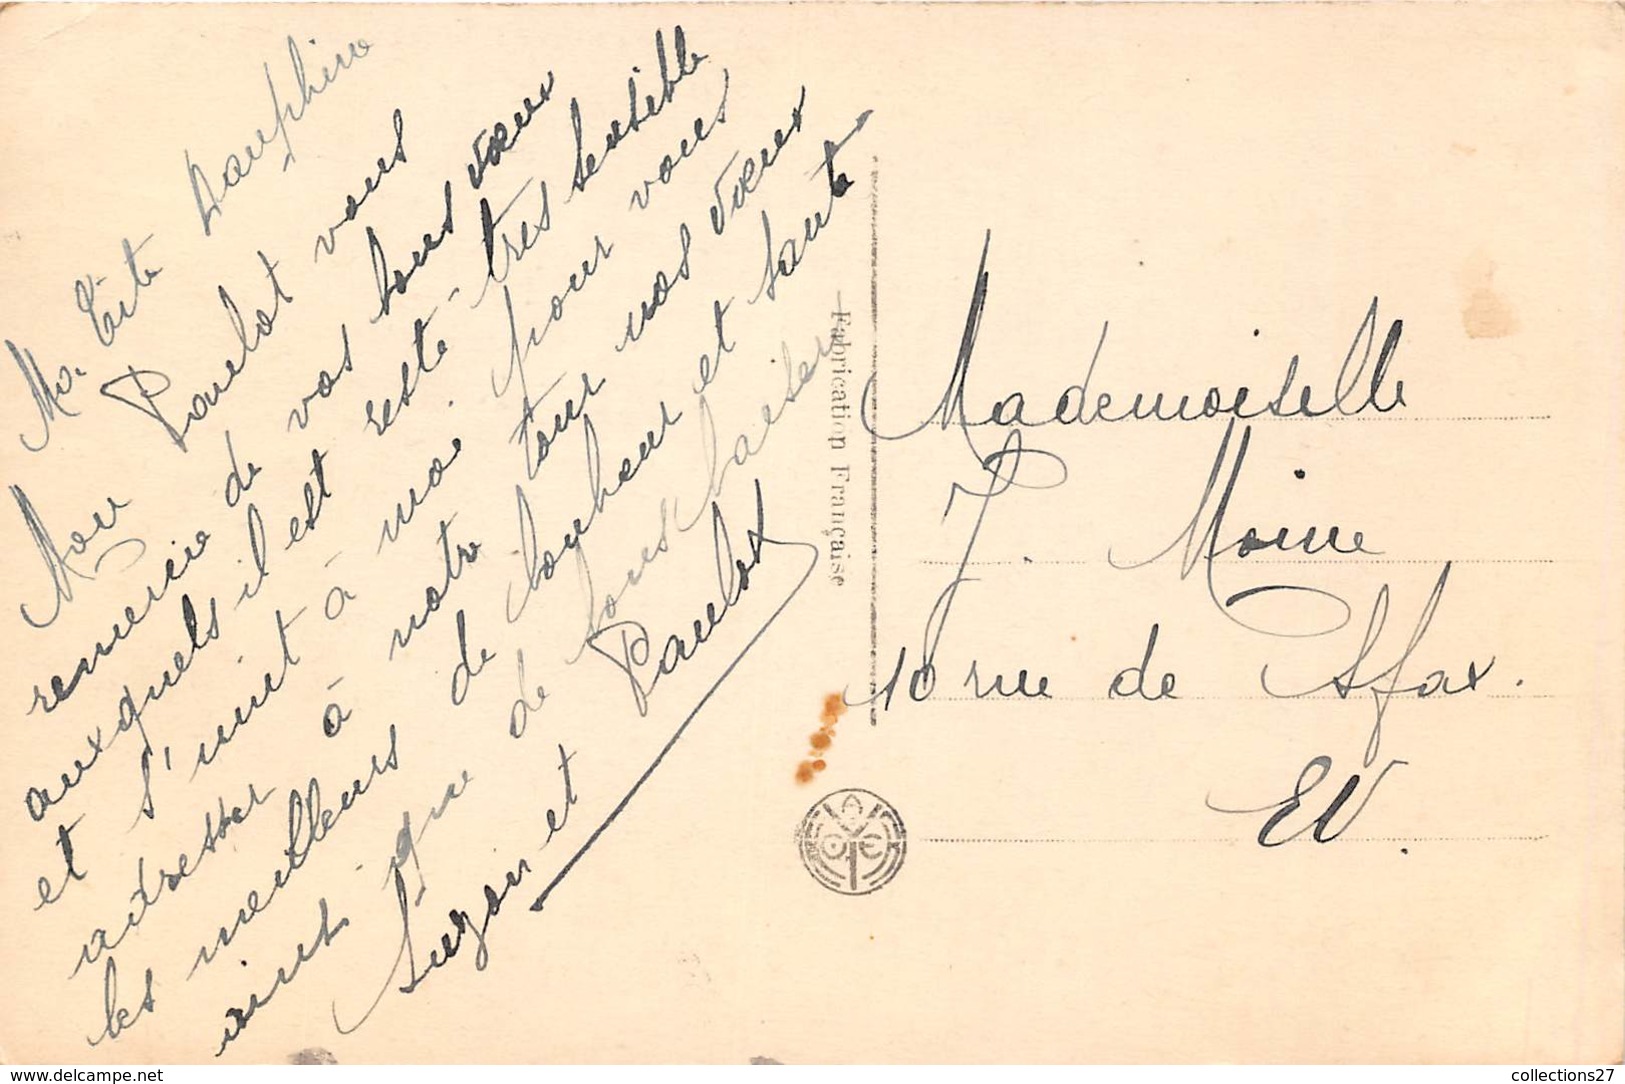 Ma Tite Dauphine
Mon Paulot vous
remercie de vos bons vœux
auxquels il est resté très sensible
et s'unit à moi pour vous
adresser à notre tour nos vœux
les meilleurs de bonheur et santé
ainsi que de bons baisers
Suzon et Paulot
Fabrication Française
Mademoiselle
J. Moine
10 rue de Sfax.
EV.
collections27